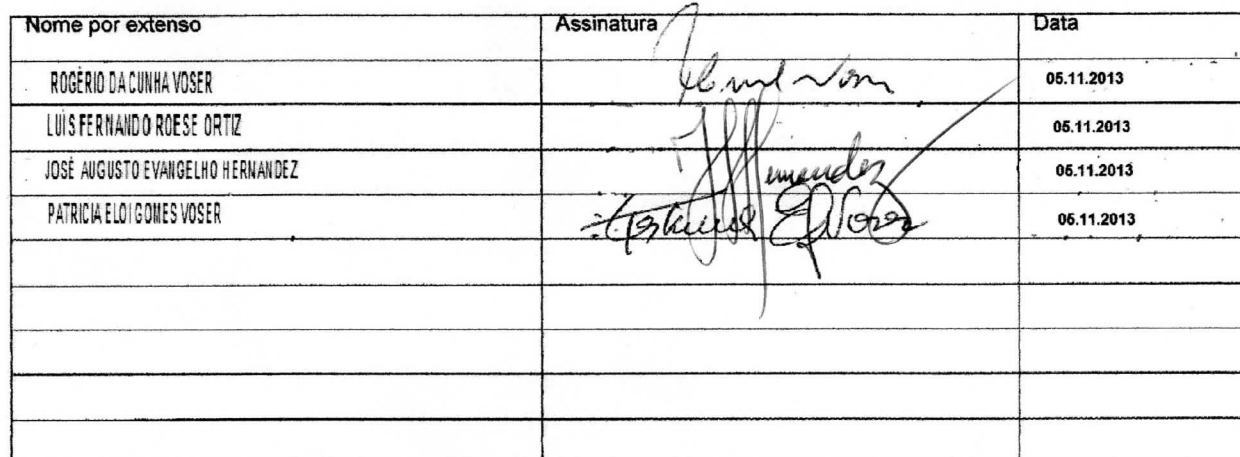 Nome por extenso Assinatura Data
ROGÉRIO DA CUNHA VOSER 05.11.2013
LUÍS FERNANDO ROESE ORTIZ 05.11.2013
JOSÉ AUGUSTO EVANGELHO HERNANDEZ 05.11.2013
PATRICIA ELOI GOMES VOSER 05.11.2013